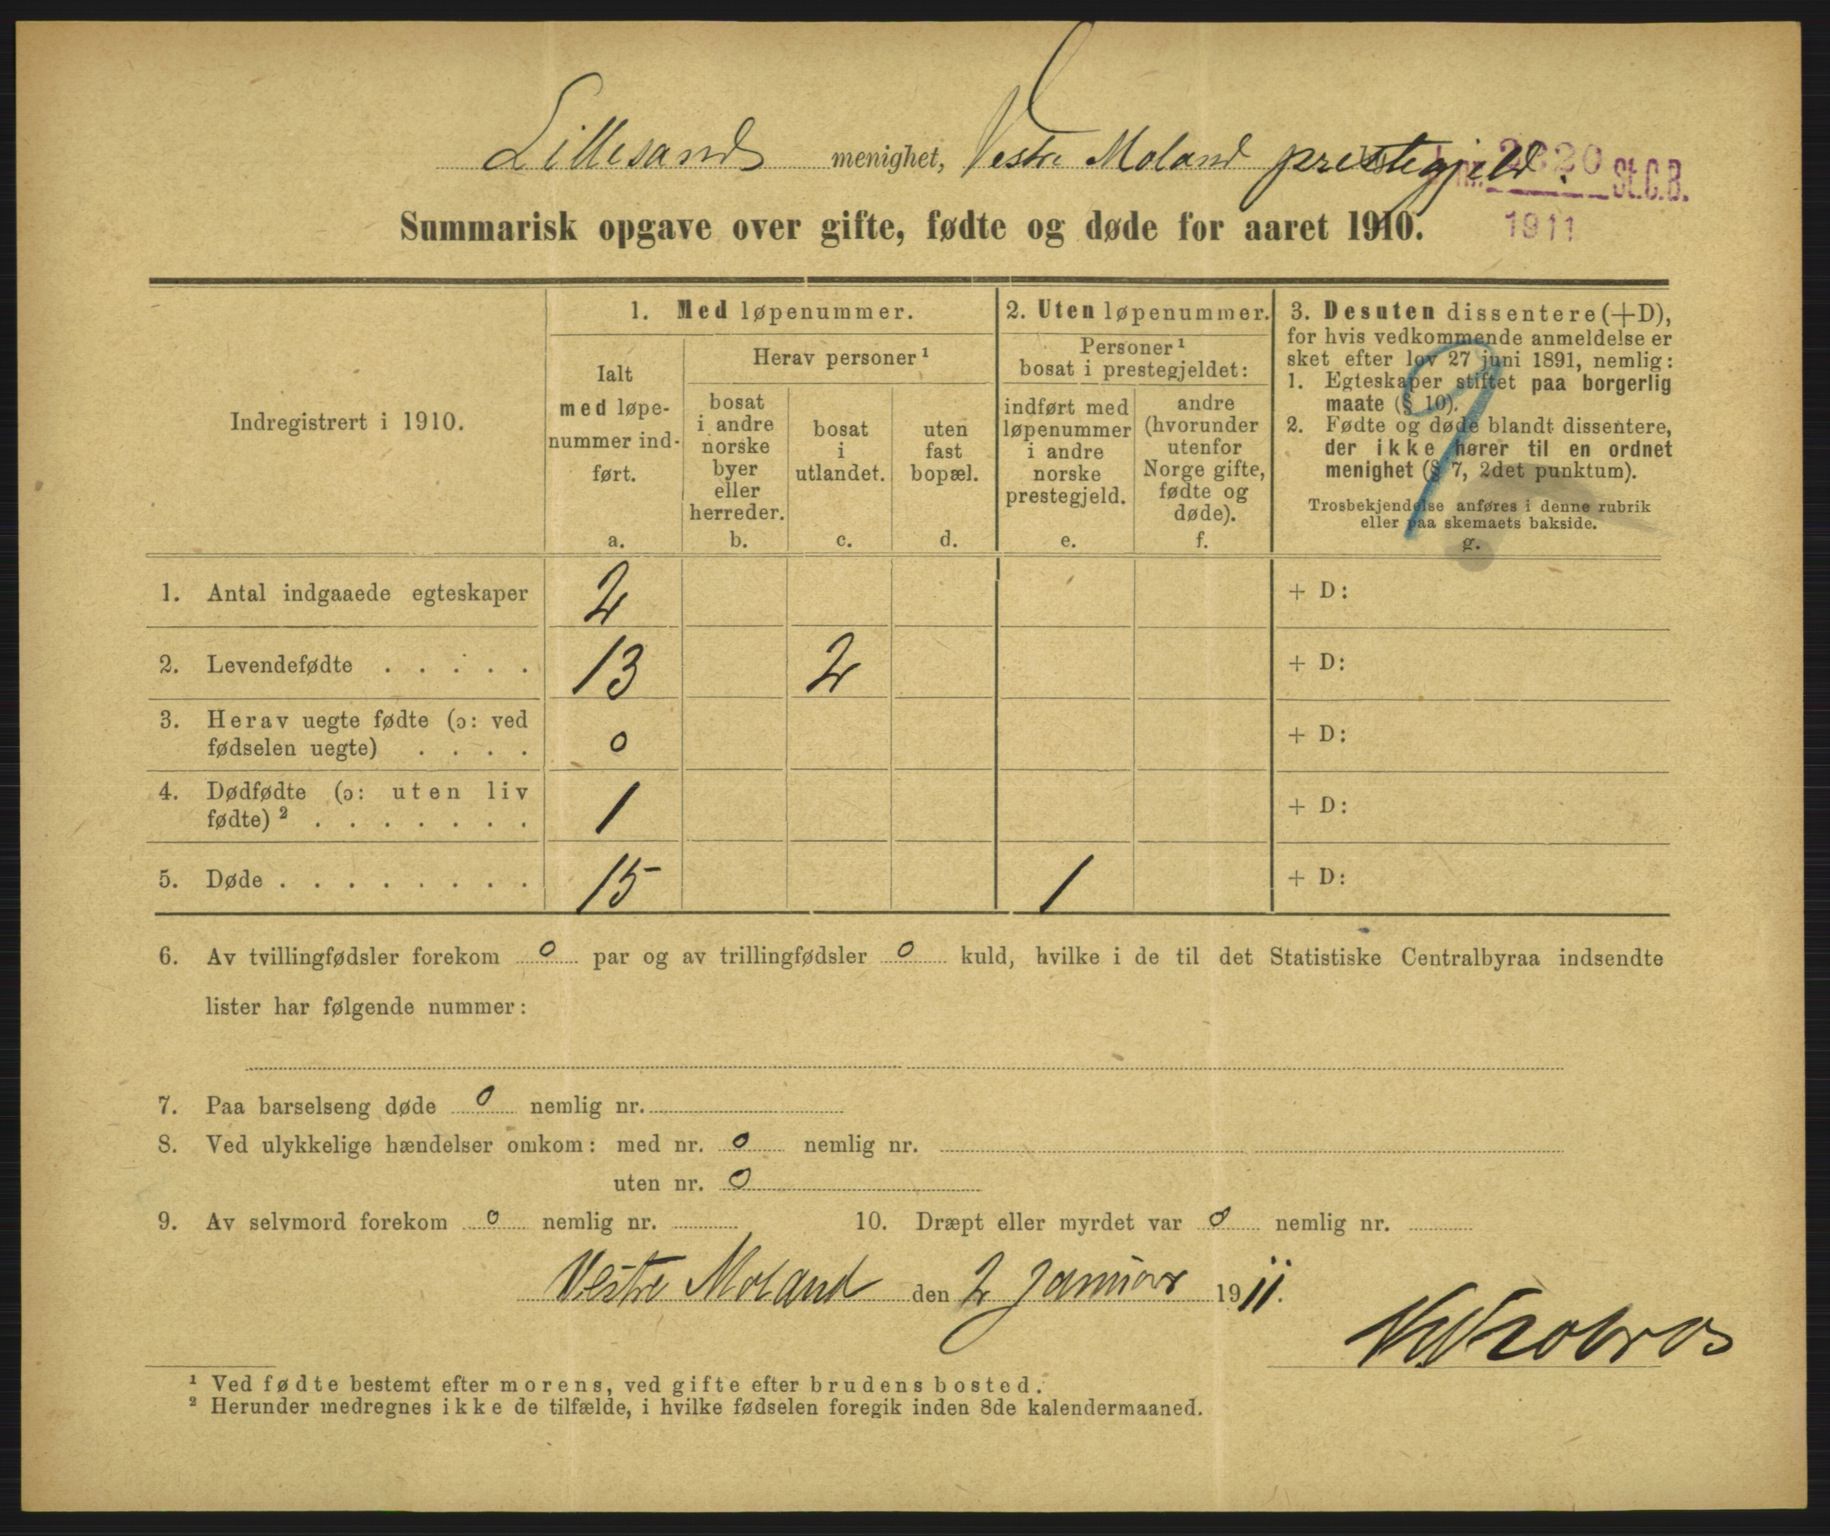 Lillesand menighet, Vestre Moland prestegjeld.
2320 St.C.B.
1911
Summarisk opgave over gifte, fødte og døde for aaret 1910.
Indregistrert i 1910.
1. Med løpenummer.
Ialt
med løpe-
nummer ind-
ført.
a.
Herav personer ¹
bosat
i andre
norske
byer
eller
herreder.
b.
bosat
i
utlandet.
c.
uten
fast
bopæl.
d.
2. Uten løpenummer.
Personer ¹
bosat i prestegjeldet:
indført med
løpenummer
i andre
norske
prestegjeld.
e.
andre
(hvorunder
utenfor
Norge gifte,
fødte og
døde).
f.
3. Desuten dissentere (+D),
for hvis vedkommende anmeldelse er
sket efter lov 27 juni 1891, nemlig:
1. Egteskaper stiftet paa borgerlig
maate (§ 10).
2. Fødte og døde blandt dissentere,
der ikke hører til en ordnet
menighet (§ 7, 2det punktum).
Trosbekjendelse anføres i denne rubrik
eller paa skemaets bakside.
g.
1. Antal indgaaede egteskaper 2 + D:
2. Levendefødte . . . . . 13 2 + D:
3. Herav uegte fødte (ɔ: ved
fødselen uegte) . . . . 0 + D:
4. Dødfødte (ɔ: uten liv
fødte) ² . . . . . . . 1 + D:
5. Døde . . . . . . . . 15 1 + D:
6. Av tvillingfødsler forekom 0 par og av trillingfødsler 0 kuld, hvilke i de til det Statistiske Centralbyraa indsendte
lister har følgende nummer:
7. Paa barselseng døde 0 nemlig nr.
8. Ved ulykkelige hændelser omkom: med nr. 0 nemlig nr.
uten nr. 0
9. Av selvmord forekom 0 nemlig nr. 10. Dræpt eller myrdet var 0 nemlig nr.
Vestre Moland den 2 Januar 1911.
¹ Ved fødte bestemt efter morens, ved gifte efter brudens bosted.
² Herunder medregnes ikke de tilfælde, i hvilke fødselen foregik inden 8de kalendermaaned.